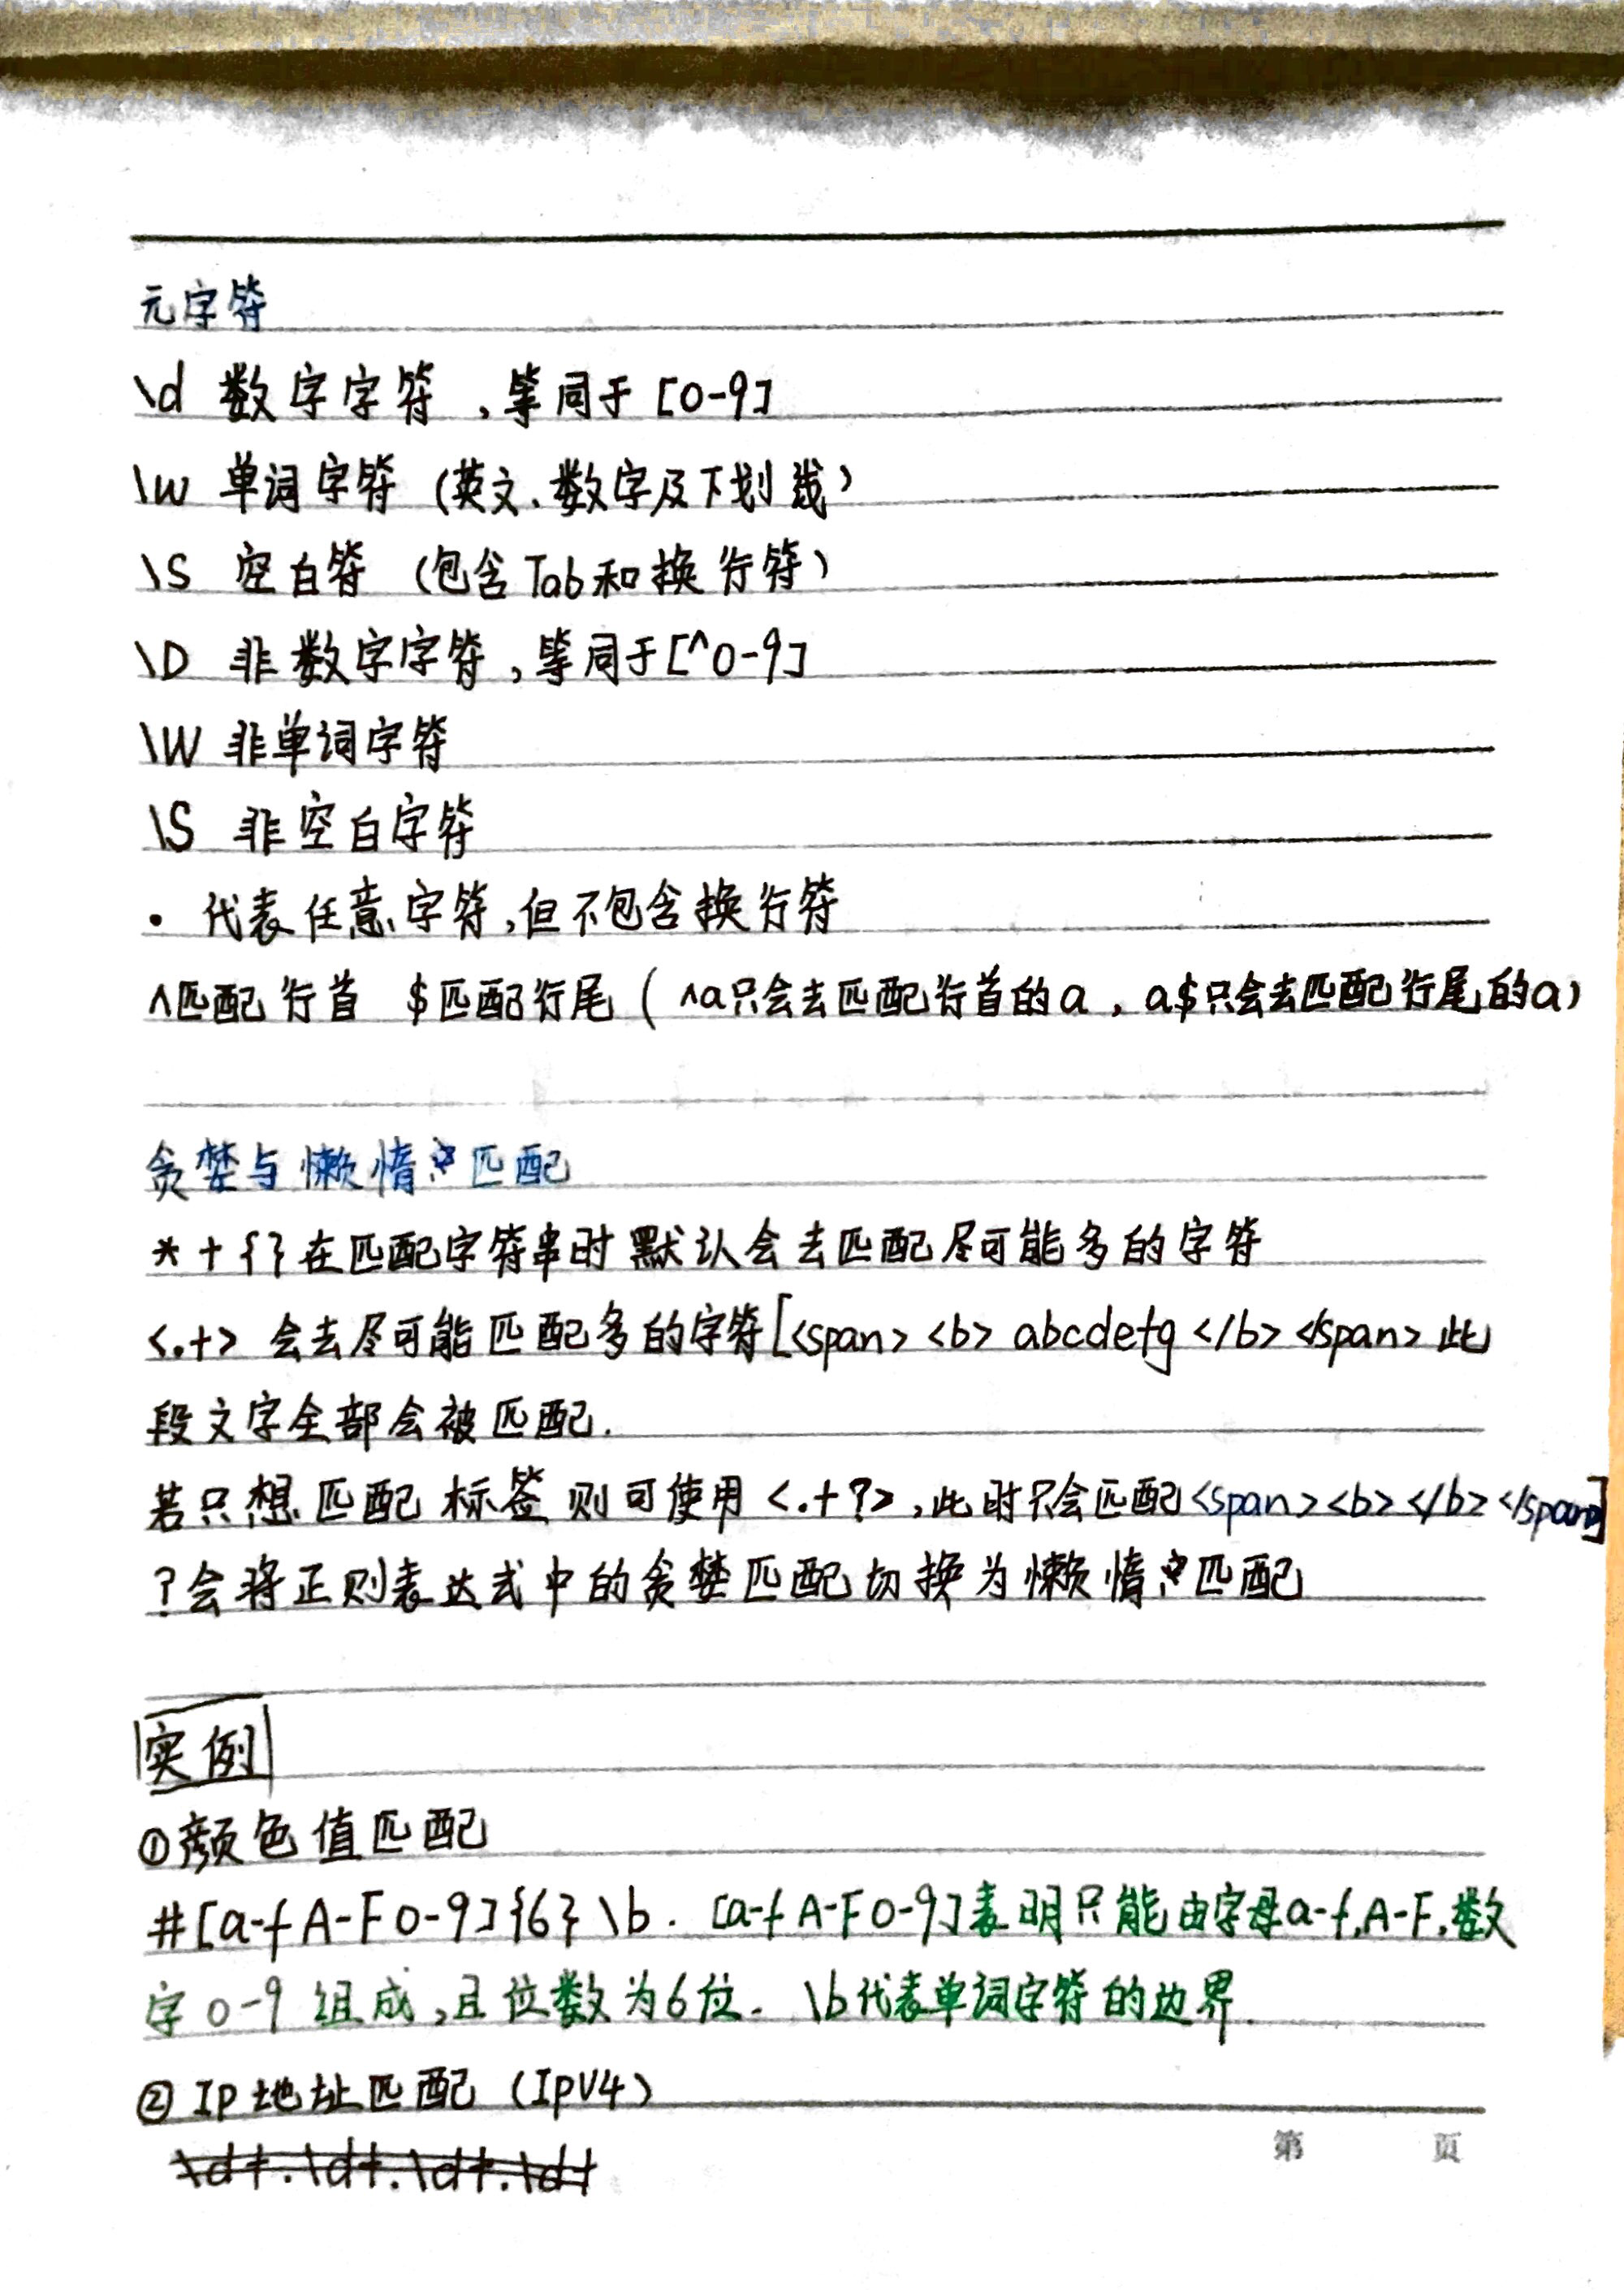 元字符
\d 数字字符 ，等同于 [0-9]
\w 单词字符 (英文、数字及下划线)
\s 空白符 (包含Tab和换行符)
\D 非数字字符，等同于[^0-9]
\W 非单词字符
\S 非空白字符
. 代表任意字符,但不包含换行符
^匹配行首 $匹配行尾 ( ^a只会去匹配行首的a , a$只会去匹配行尾的a)
贪婪与懒惰匹配
* + {} 在匹配字符串时默认会去匹配尽可能多的字符
<.+> 会去尽可能匹配多的字符[<span> <b> abcdefg </b> </span> 此
段文字全部会被匹配.
若只想匹配 标签 则可使用 <.+?>,此时只会匹配<span><b></b></span>]
?会将正则表达式中的贪婪匹配切换为懒惰匹配
实例
①颜色值匹配
#[a-fA-F0-9]{6}\b. [a-fA-F0-9]表明只能由字母a-f,A-F,数
字0-9组成,且位数为6位. \b代表单词字符的边界.
②IP地址匹配 (IPV4)
\d+.\d+.\d+.\d+
第 页